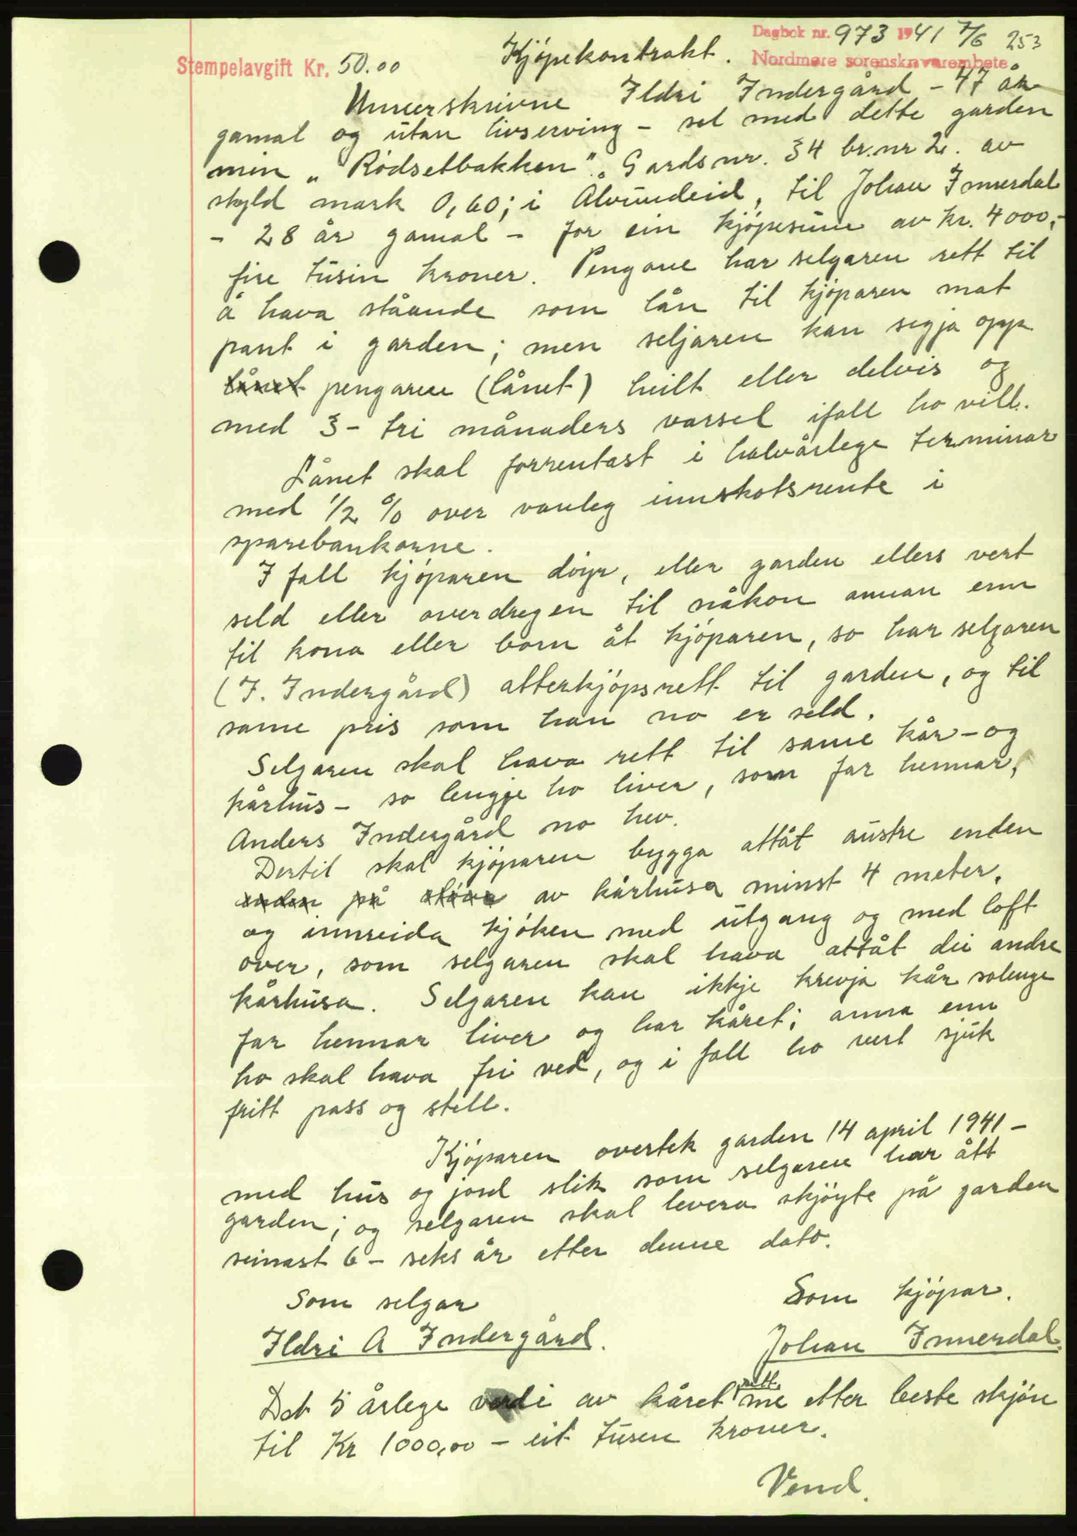 Dagbok nr. 973 1941 7/6 253
Nordmøre sorenskriverembete
Stempelavgift Kr. 50.00
Kjøpekontrakt.
Underskrivne Ildri Indergård - 47 år
gamal og utan livserving - sel med dette garden
min „Rødsetbakken“. Gardsnr. 34 br.nr 2. av
skyld mark 0,60; i Ålvundeid, til Johan Innerdal
- 28 år gamal - for ein kjøpesum av kr. 4000,-
fire tusin kroner. Pengane har selgaren rett til
å hava ståande som lån til kjøparen mot
pant i garden; men seljaren kan segja opp
lånet pengaree (lånet) heilt eller delvis og
med 3 - tri månaders varsel ifall ho vill.
Lånet skal forrentast i halvårlege terminar
med 1/2 % over vanleg innskotsrente i
sparebankorne.
I fall kjøparen døyr, eller garden ellers vert
seld eller overdregen til nåkon annan enn
til kona eller born åt kjøparen, so har selgaren
(I. Indergård) atterkjøpsrett til garden, og til
same pris som han no er seld.
Selgaren skal hava rett til same kår - og
kårhus - so lengje ho liver, som far hennar,
Anders Indergård no hev.
Dertil skal kjøparen bygga attåt austre enden
enden på av kårhusa minst 4 meter,
og innreida kjøken med utgang og med loft
over, som selgaren skal hava attåt dei andre
kårhusa. Selgaren kan ikkje krevja kår solenge
far hennar liver og har kåret; anna enn
ho skal hava fri ved, og i fall ho vert sjuk
fritt pass og stell.
Kjøparen overtek garden 14 april 1941 -
med hus og jord slik som selgaren har ått
garden; og selgaren skal levera skjøyte på garden
seinast 6 - seks år etter denne dato.
Som selgar
Som kjøpar.
Ildri A Indergård.
Johan Innerdal.
sett
Det 5 årlege verdi av kåret me etter beste skjøn
til Kr 1000,00 - eit tusen kroner.
Vend.